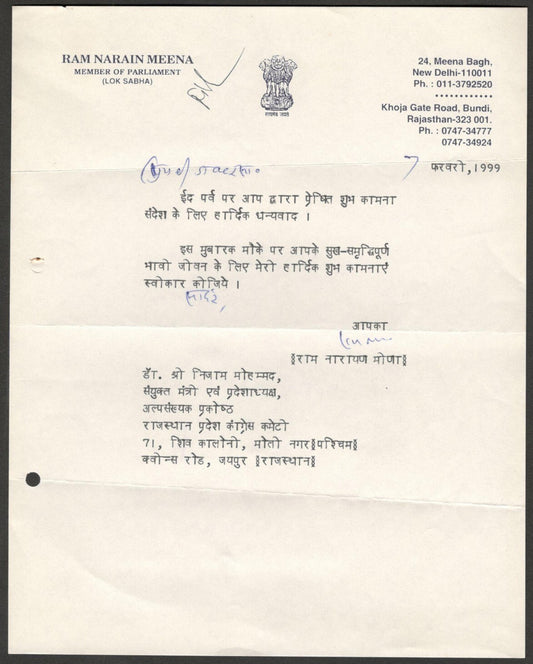 RAM NARAIN MEENA
MEMBER OF PARLIAMENT
(LOK SABHA)
सत्यमेव जयते
24, Meena Bagh,
New Delhi-110011
Ph. : 011-3792520
Khoja Gate Road, Bundi,
Rajasthan-323 001.
Ph. : 0747-34777
0747-34924
7 फरवरी, 1999
ईद पर्व पर आप द्वारा प्रेषित शुभ कामना
संदेश के लिए हार्दिक धन्यवाद ।
इस मुबारक मौके पर आपके सुख-समृद्धिपूर्ण
भावी जीवन के लिए मेरी हार्दिक शुभ कामनाएँ
स्वीकार कीजिये ।
सादर,
आपका
(राम नारायण मीणा)
डॉ. श्री निजाम मोहम्मद,
संयुक्त मंत्री एवं प्रदेशाध्यक्ष,
अल्पसंख्यक प्रकोष्ठ
राजस्थान प्रदेश कांग्रेस कमेटी
71, शिव कालोनी, मोती नगर(पश्चिम)
क्वीन्स रोड, जयपुर (राजस्थान)